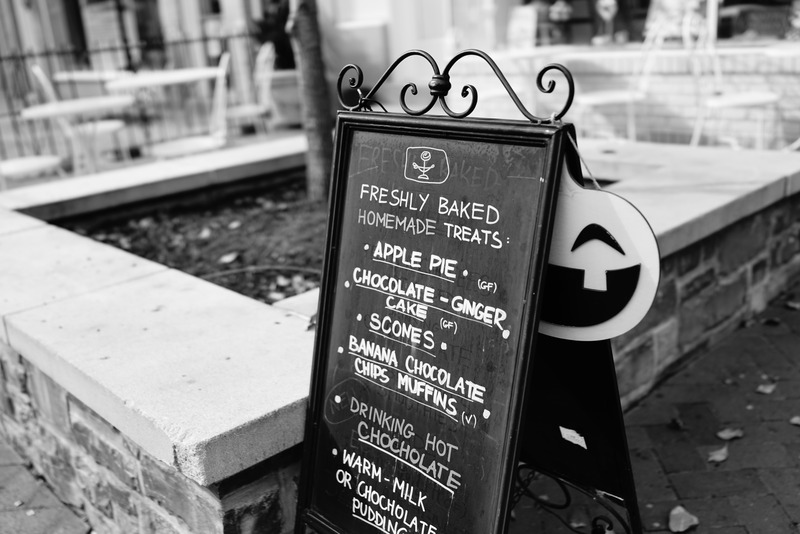 FRESHLY BAKED
HOMEMADE TREATS:
• APPLE PIE • (GF)
• CHOCOLATE-GINGER
CAKE (GF)
• SCONES •
• BANANA CHOCOLATE
CHIPS MUFFINS • (V)
• DRINKING HOT
CHOCHOLATE
• WARM-MILK
OR CHOCHOLATE
PUDDING